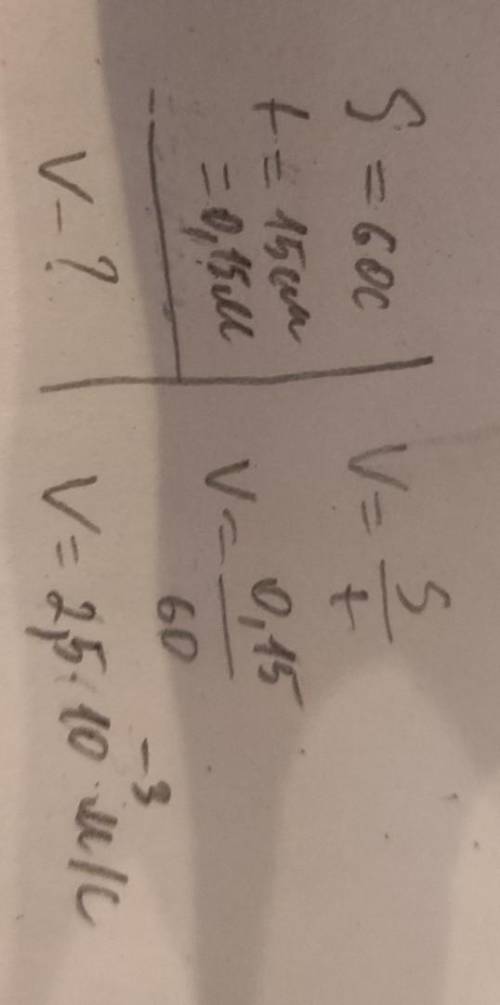 S = 60с
t = 15см
= 0,15м
V - ?
V = S/t
V = 0,15/60
V = 2,5·10⁻³ м/с